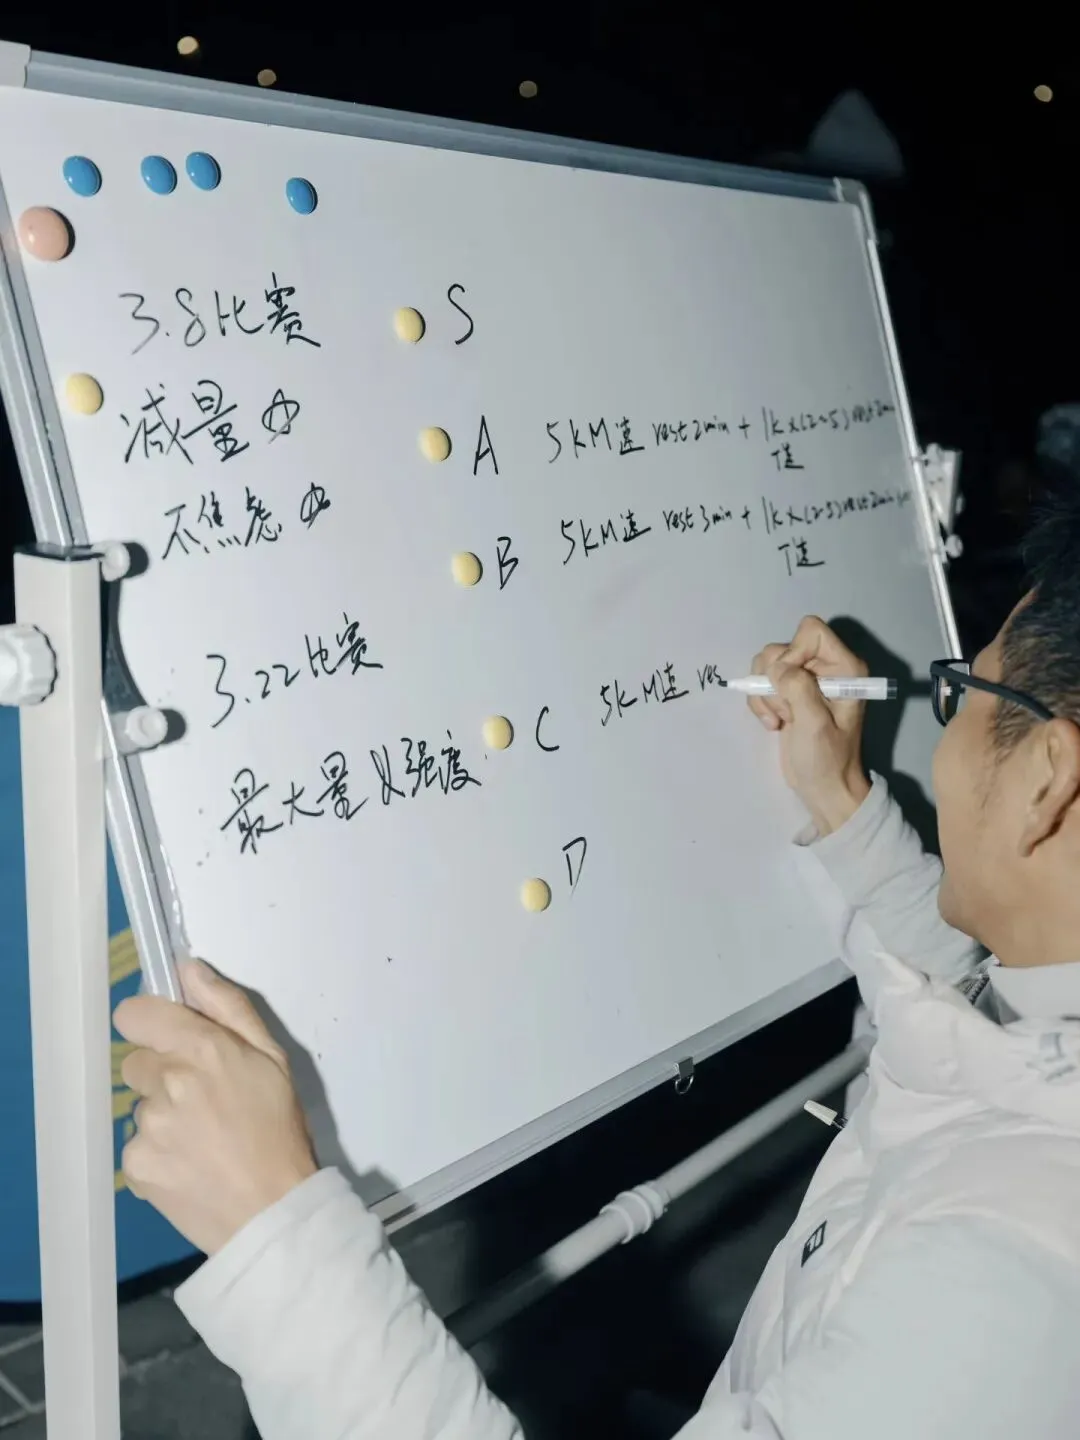 3.8比赛
减量
不焦虑
3.22比赛
最大量&强度
S
A 5KM速 rest 2min + 1k×(2~5) rest 2min
T速
B 5KM速 rest 3min + 1k×(2~5) rest 2min
T速
C 5KM速 res
D